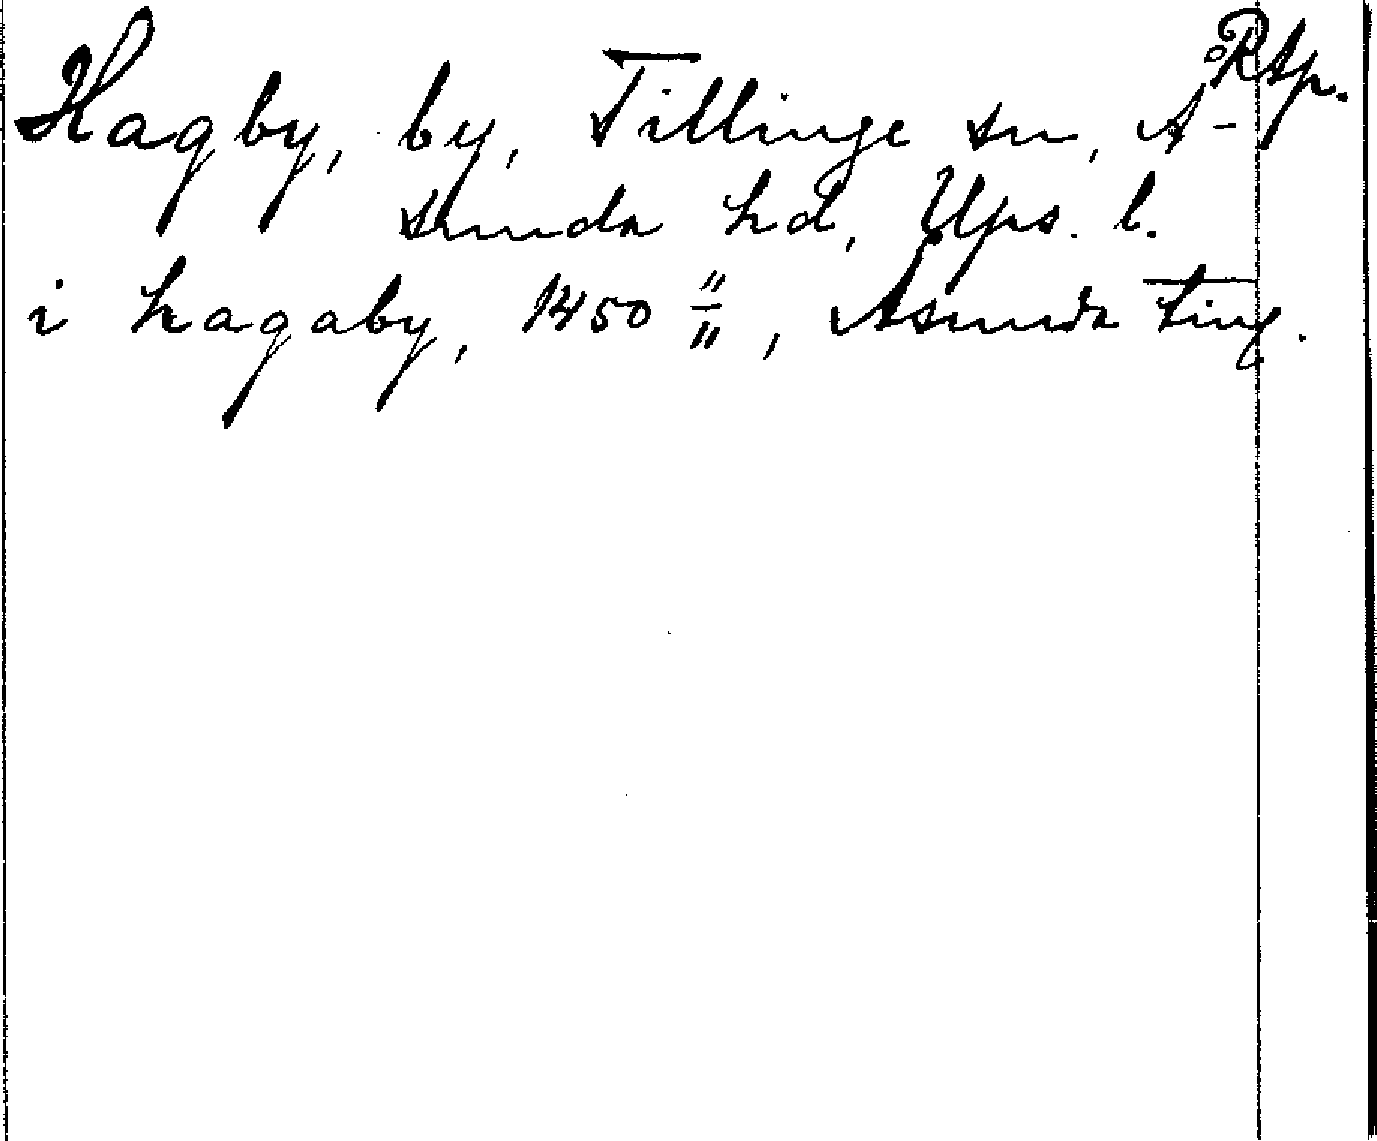 RAp.
Hagby, by, Tillinge sn, Å-
sunda hd, Ups. l.
i hagaby, 1450 11/11, Asunda ting.